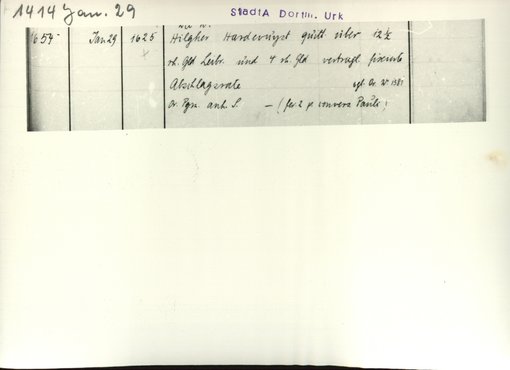 1414 Jan. 29
StadtA Dortm. Urk
1654 Jan 29 1625 Hilgher Hardevuyst quitt über 12½
rh. Gld Leibr. und 4 rh. Gld vertragl. fixierte
Abschlagsrate
Or. Pgm. anh. S. — (fer 2 p convers Pauli)